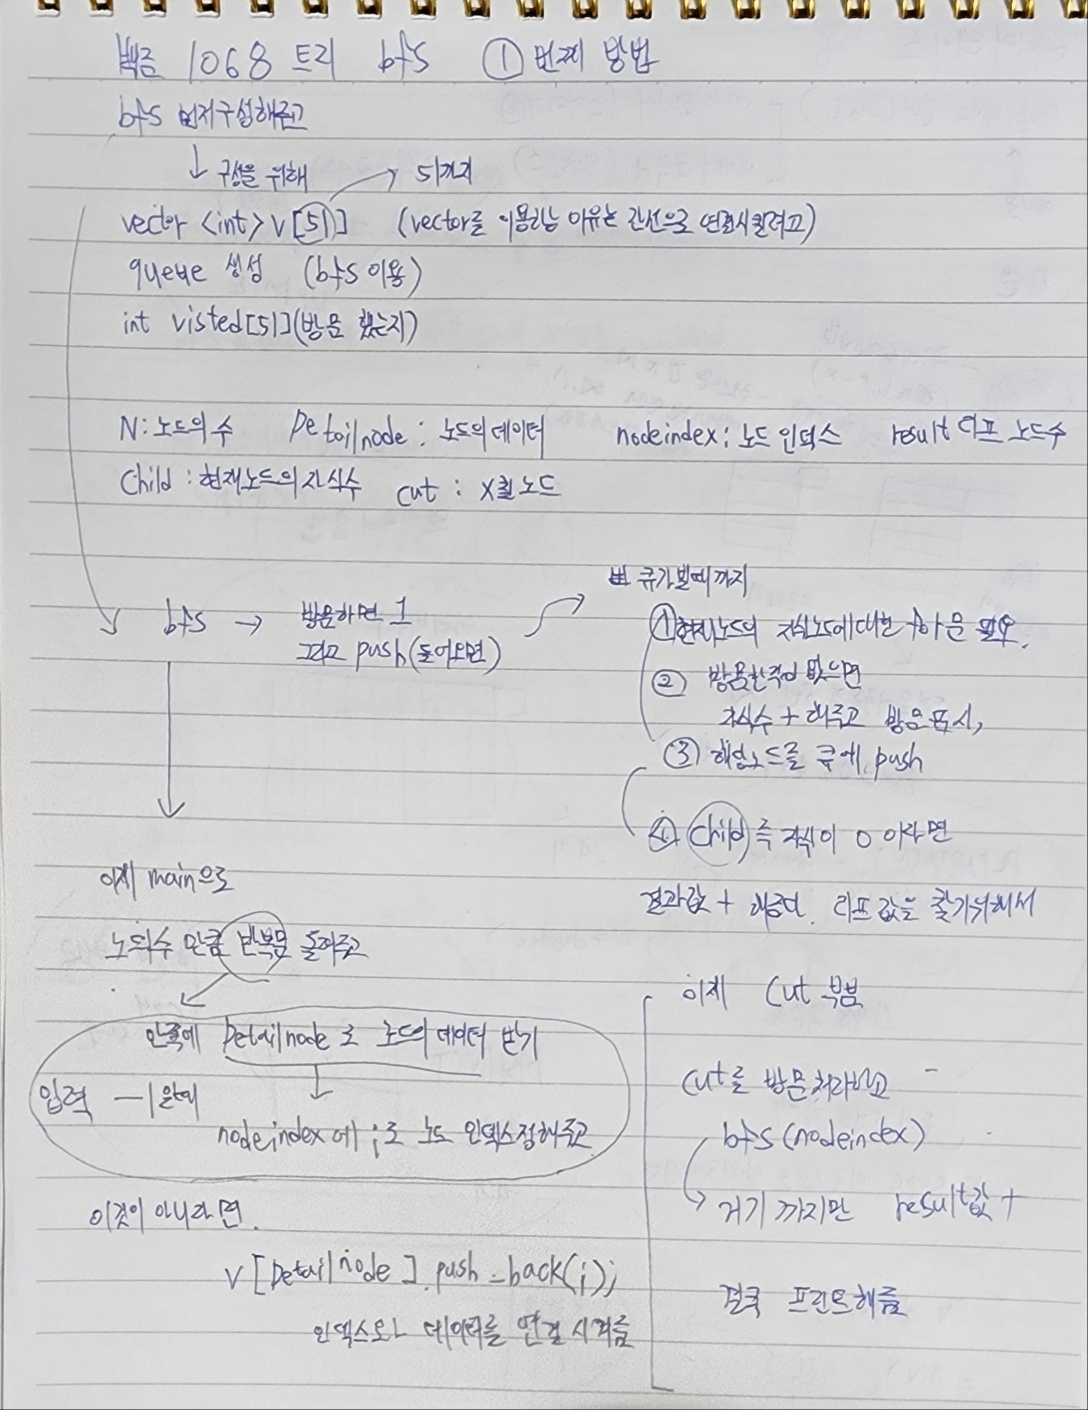 백준 1068 트리 bfs ① 번째 방법
bfs 먼저구성해주고
↓ 구성을 위해 → 51까지
vector <int> v[51] (vector를 이용하는 이유는 간선으로 연결시킬려고)
queue 생성 (bfs 이용)
int visted[51](방문 했는지)
N: 노드의 수 Detailnode : 노드의 데이터 nodeindex : 노드 인덱스 result 리프 노드수
Child : 현재노드의 자식수 cut : X될 노드
bfs → 방문하면 1
그리고 push(들어오면)
큐가빌때까지
① 현재노드의 자식노드에대한 for문 필요.
② 방문한적이 없으면
자식수 + 해주고 방문표시,
③ 해당노드를 큐에 push
④ Child 즉 자식이 0 이라면
결과값 + 해준다. 리프 값을 찾기위해서
이제 main으로
노드수 만큼 반복문 돌려주고
안쪽에 Detailnode로 노드의 데이터 받기
입력 -1 일때
nodeindex에 i로 노드 인덱스정해주고
이것이 아니라면.
v [Detailnode].push_back(i);
인덱스와 데이터를 연결 시켜줌
이제 Cut 부분
Cut를 방문처리하고
bfs(nodeindex)
거기 까지만 result값 +
결국 프린트해줌